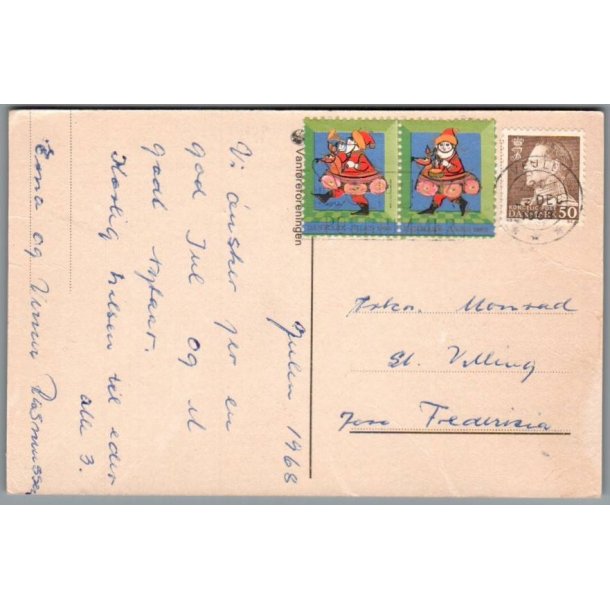 Julen 1968
Vi ønsker jer en
god Jul og et
godt Nytaar.
Kærlig hilsen til eder
alle 3.
Erna og Verner Rasmussen
Vanføreforeningen
DANMARK
50
Frkn. Monrad
St. Velling
Fredericia